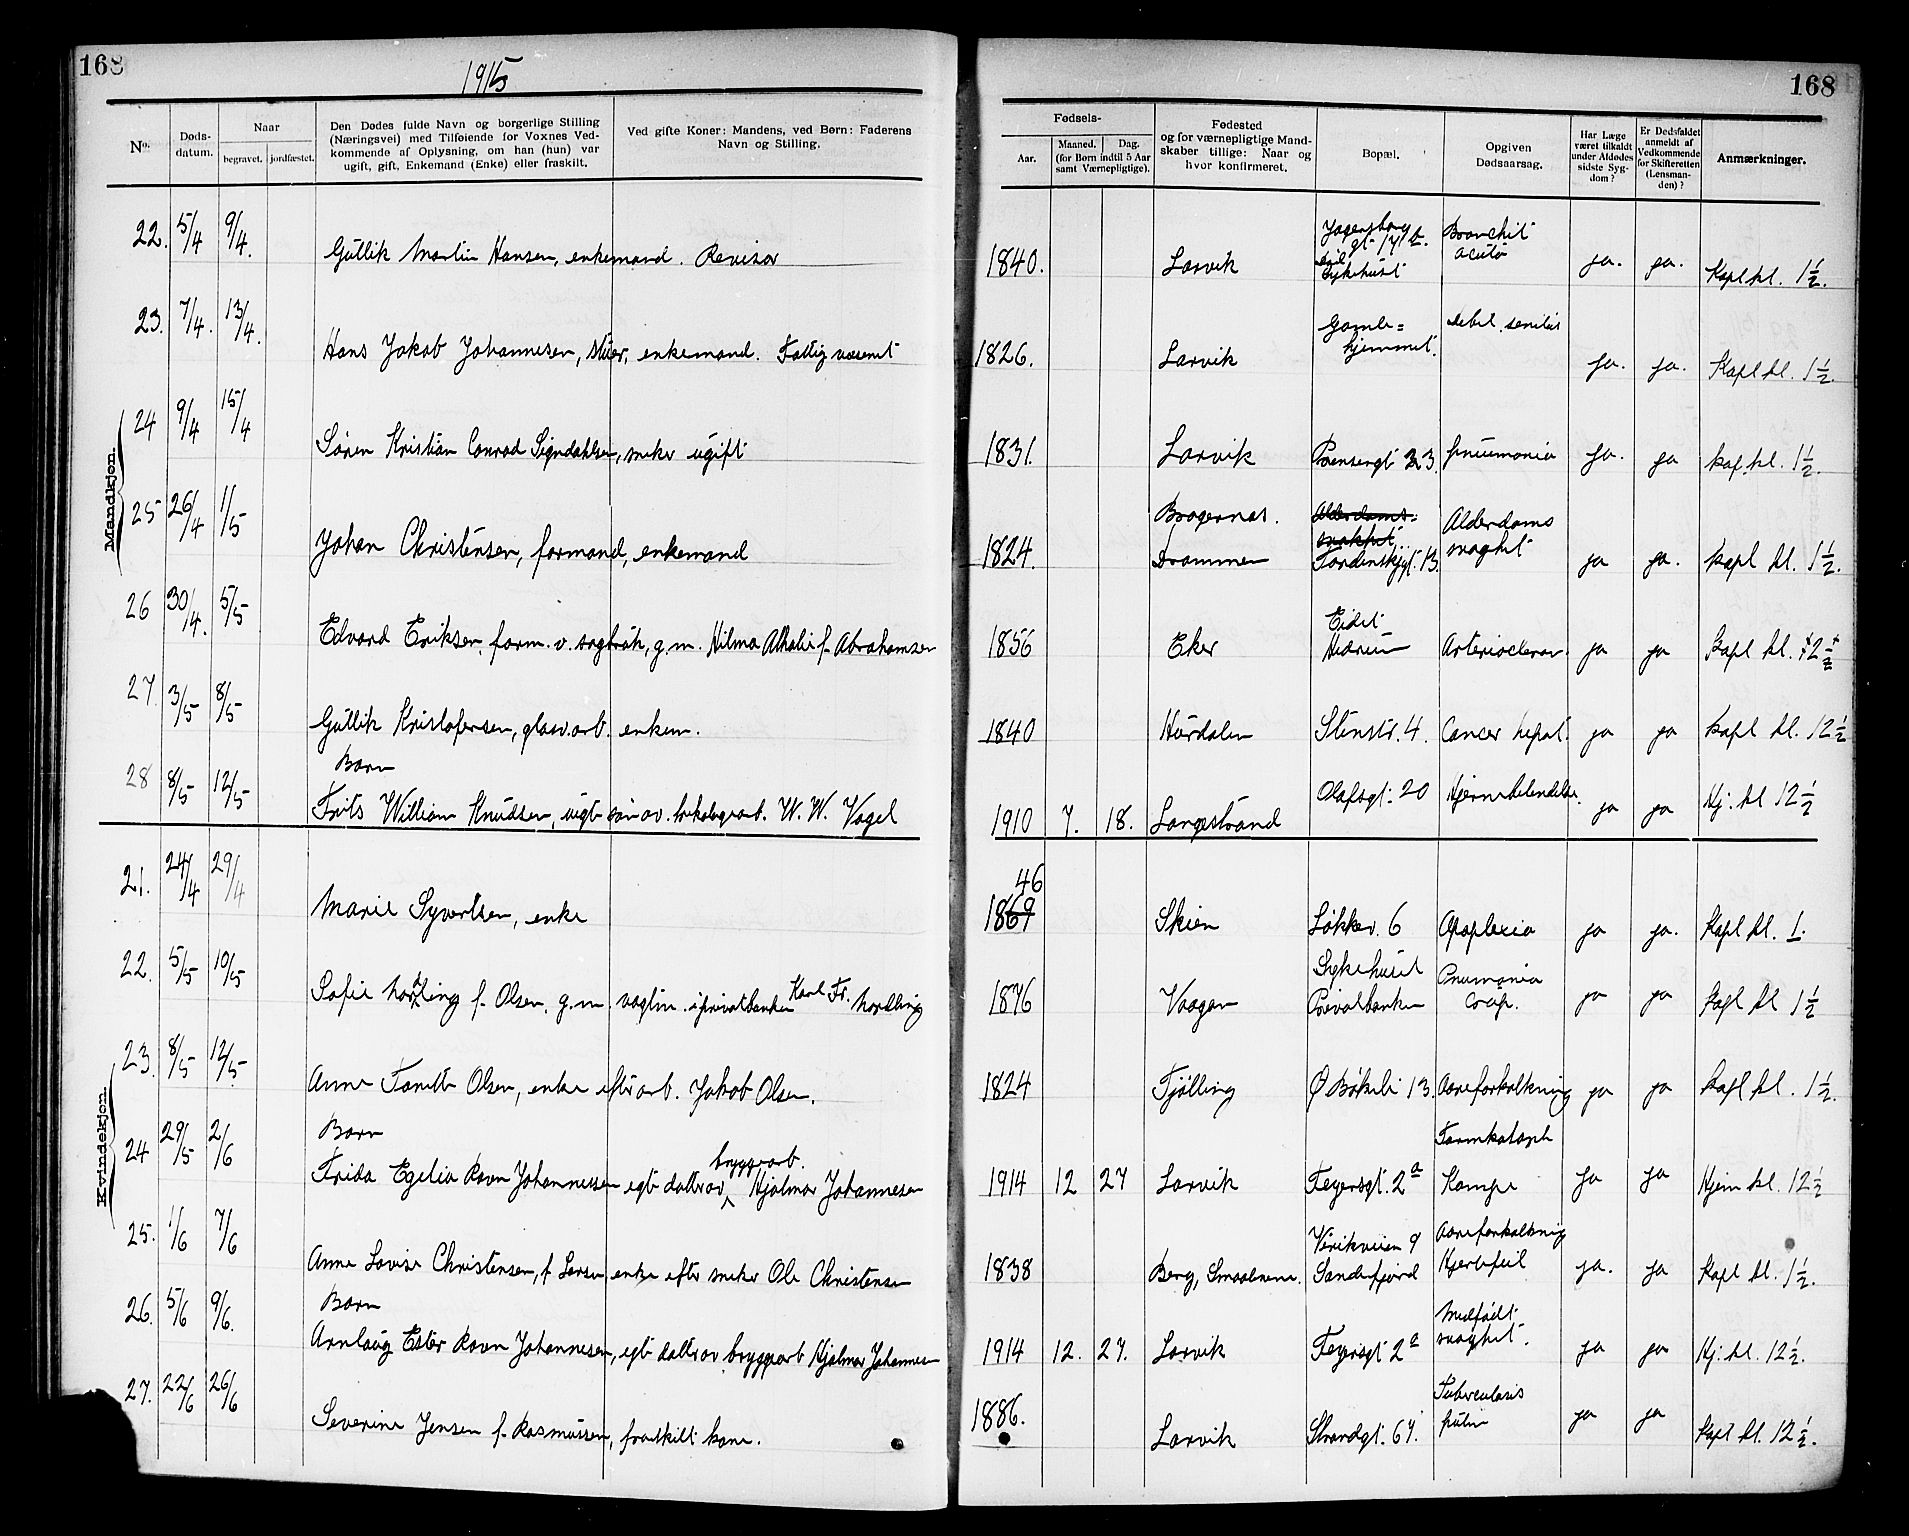 168
1915
168
No.
Døds-
datum.
Naar
begravet. jordfæstet.
Den Dødes fulde Navn og borgerlige Stilling
(Næringsvei) med Tilføiende for Voxnes Ved-
kommende af Oplysning, om han (hun) var
ugift, gift, Enkemand (Enke) eller fraskilt.
Ved gifte Koner: Mandens, ved Børn: Faderens
Navn og Stilling.
Fødsels-
Aar.
Maaned. Dag.
(for Børn indtil 5 Aar
samt Værnepligtige).
Fødested
og for værnepligtige Mand-
skaber tillige: Naar og
hvor konfirmeret.
Bopæl.
Opgiven
Dødsaarsag.
Har Læge
været tilkaldt
under Afdødes
sidste Syg-
dom?
Er Dødsfaldet
anmeldt af
Vedkommende
for Skifteretten
(Lensman-
den)?
Anmærkninger.
Mandkjøn.
22. 5/4 9/4. Gullik Martin Hansen, enkemand. Revisor 1840. Larvik sykehuset Bronchit acuta ja. ja. Kapl kl. 1 1/2.
23. 7/4. 13/4. Hans Jakob Johannesen, enkemand. Fattigvæsenet 1826. Larvik Gamle= hjemmet. debil. senilis ja. ja. Kapl kl. 1 1/2.
24 9/4 15/4 Søren Kristian Conrad Signdahlsen, sneker ugift 1831. Larvik 23. pneumonia ja. ja kap. kl. 1 1/2.
25 26/4 1/5 Johan Christensen, formand, enkemand 1824. Bragernes. Drammen Alderdoms= svakhet. Tordenskjgt. 13. Alderdoms svaghet ja ja. kapl kl. 1 1/2.
26 30/4. 5/5 Edvard Eriksen, form. v. sagbruk, g. m. Hilma Athalie f. Abrahamsen 1856 Eker Eidet Hedrum Arterioscleros. ja ja Kapl kl. 2 1/2
27. 3/5 8/5 Gullik Kristofersen, glasv.arb. enkem. 1840 Hurdalen Stenstr. 4. Cancer hepat. ja ja kapl kl. 12 1/2
28 8/5 12/5 Barn
Frits William Knudsen, uegte søn av. W. W. Vogel 1910 7. 18. Langestrand Olafsgt. 20 Hjernebetendelse. ja ja Kj. kl 12 1/2
Kvindekjøn.
21. 24/4 29/4 Marie Syvertsen, enke 46 1869 Skien Løkkev. 6 Apoplexia ja ja. Kapl kl. 1.
22. 5/5 10/5 Sofie Nordling f. Olsen, g. m. vagtm. i privatbanken Karl Fr. Nordling 1876 Vaagan Sykehuset Privatbanken Pnumonia croup. ja ja Kapl kl 1 1/2
23. 8/5 12/5 Anne Olsen, enke efter arb. Jakob Olsen. 1824 Tjølling Ø Bøkeli 13. Aareforkalkning ja ja kapl kl. 1 1/2.
24 29/5 2/6 Barn
Frida Egelia Ravn Johannessen egte datter av bryggearb. Hjalmar Johannesen 1914 12 27 Larvik Feyersgt. 2a Tarmkatarh Krampe ja ja Kjem kl. 12 1/2
25. 1/6 7/6 Anne Lovise Christensen, f. Larsen enke efter sneker Ole Christensen 1838 Berg, Smaalenene. Sandefjord Aareforkalkning Hjertefeil ja. ja Kapl kl. 1 1/2.
26. 5/6 9/6. Barn
Arnlaug Ester Ravn Johannesen, egte datter av bryggearb Hjalmar Johannesen 1914 12. 27. Larvik Feyersgt 2a Medfødt svaghet. ja ja Kj. kl. 12 1/2.
27. 22/6 26/6 Severine Jensen f. Rasmussen, fraskilt kone. 1886. Larvik Strandgt. 67. Tuberculosis pulm ja ja Kapl kl. 12 1/2.